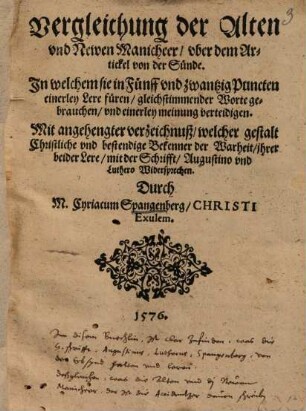 9
Vergleichung der Alten
vnd Newen Manicheer/ vber dem Ar-
tickel von der Sünde.
In welchem sie in Fünff vnd zwantzig Puncten
einerley Lere füren/ gleichstimmender Worte ge-
brauchen/ vnd einerley meinung verteidigen.
Mit angehengter verzeichnuß/ welcher gestalt
Christliche vnd bestendige Bekenner der Warheit/ ihrer
beider Lere/ mit der Schrifft/ Augustino vnd
Luthero Widersprechen.
Durch
M. Cyriacum Spangenberg/ CHRISTI
Exulem.
1576.
In disem Buechlin, ist
Augustinus, Lutherus, Spangenberg, von
der Erbsünd
was die Alten und
Manicheer